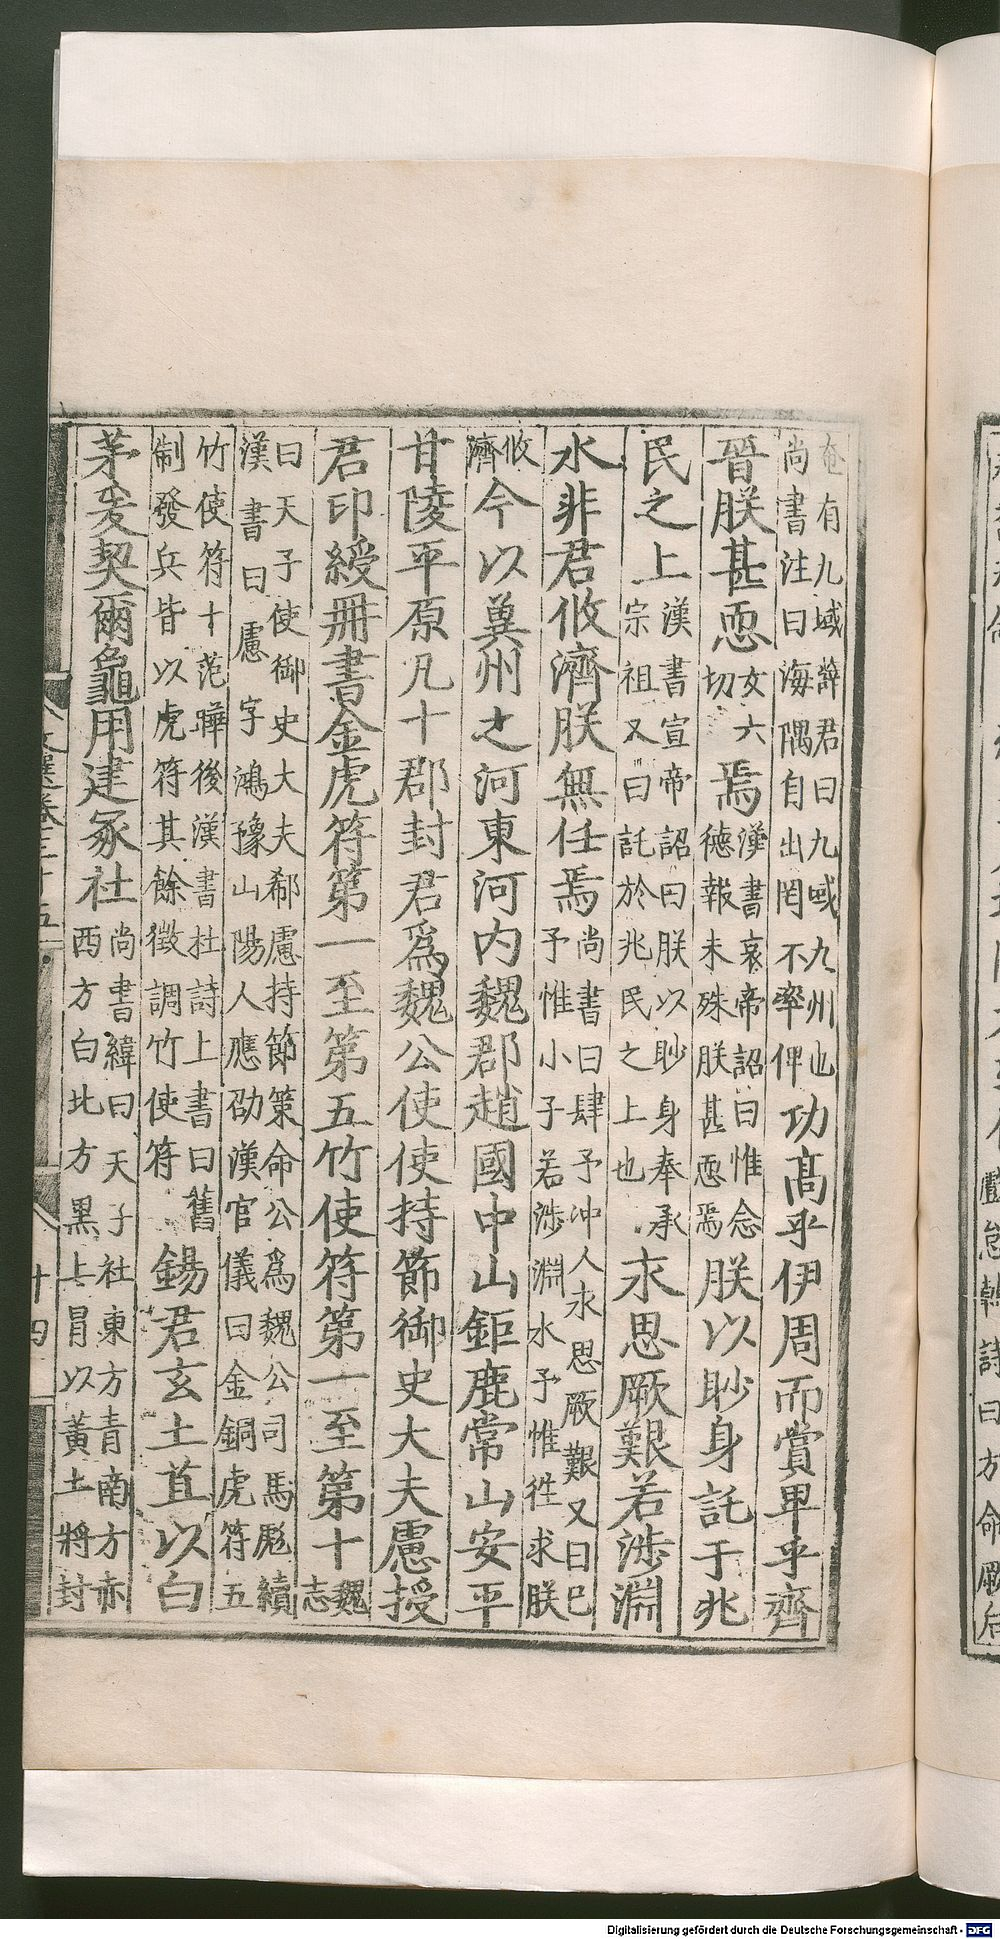 奄有九域薛君曰九域九州也尚書注曰海隅自出罔不率俾功高乎伊周而賞卑乎齊
晉朕甚恧女六切焉漢書哀帝詔曰惟念德報未殊朕甚恧焉朕以眇身託于兆
民之上漢書宣帝詔曰朕以眇身奉承宗祖又曰託於兆民之上也永思厥艱若涉淵
水非君攸濟朕無任焉尚書曰肆予沖人永思厥艱又曰已予惟小子若涉淵水予惟往求朕
攸濟今以冀州之河東河内魏郡趙國中山鉅鹿常山安平
甘陵平原凡十郡封君爲魏公使使持節御史大夫慮授
君印綬冊書金虎符第一至第五竹使符第一至第十魏志
曰天子使御史大夫郗慮持節策命公爲魏公司馬彪續漢書曰慮字鴻豫山陽人應劭漢官儀曰金銅虎符五
竹使符十范曄後漢書杜詩上書曰舊制發兵皆以虎符其餘徵調竹使符錫君玄土苴以白
茅爰契爾龜用建冢社尚書緯曰天子社東方青南方赤西方白北方黑上冒以黃土將封
文選卷三十五
十四
Digitalisierung gefördert durch die Deutsche Forschungsgemeinschaft - DFG